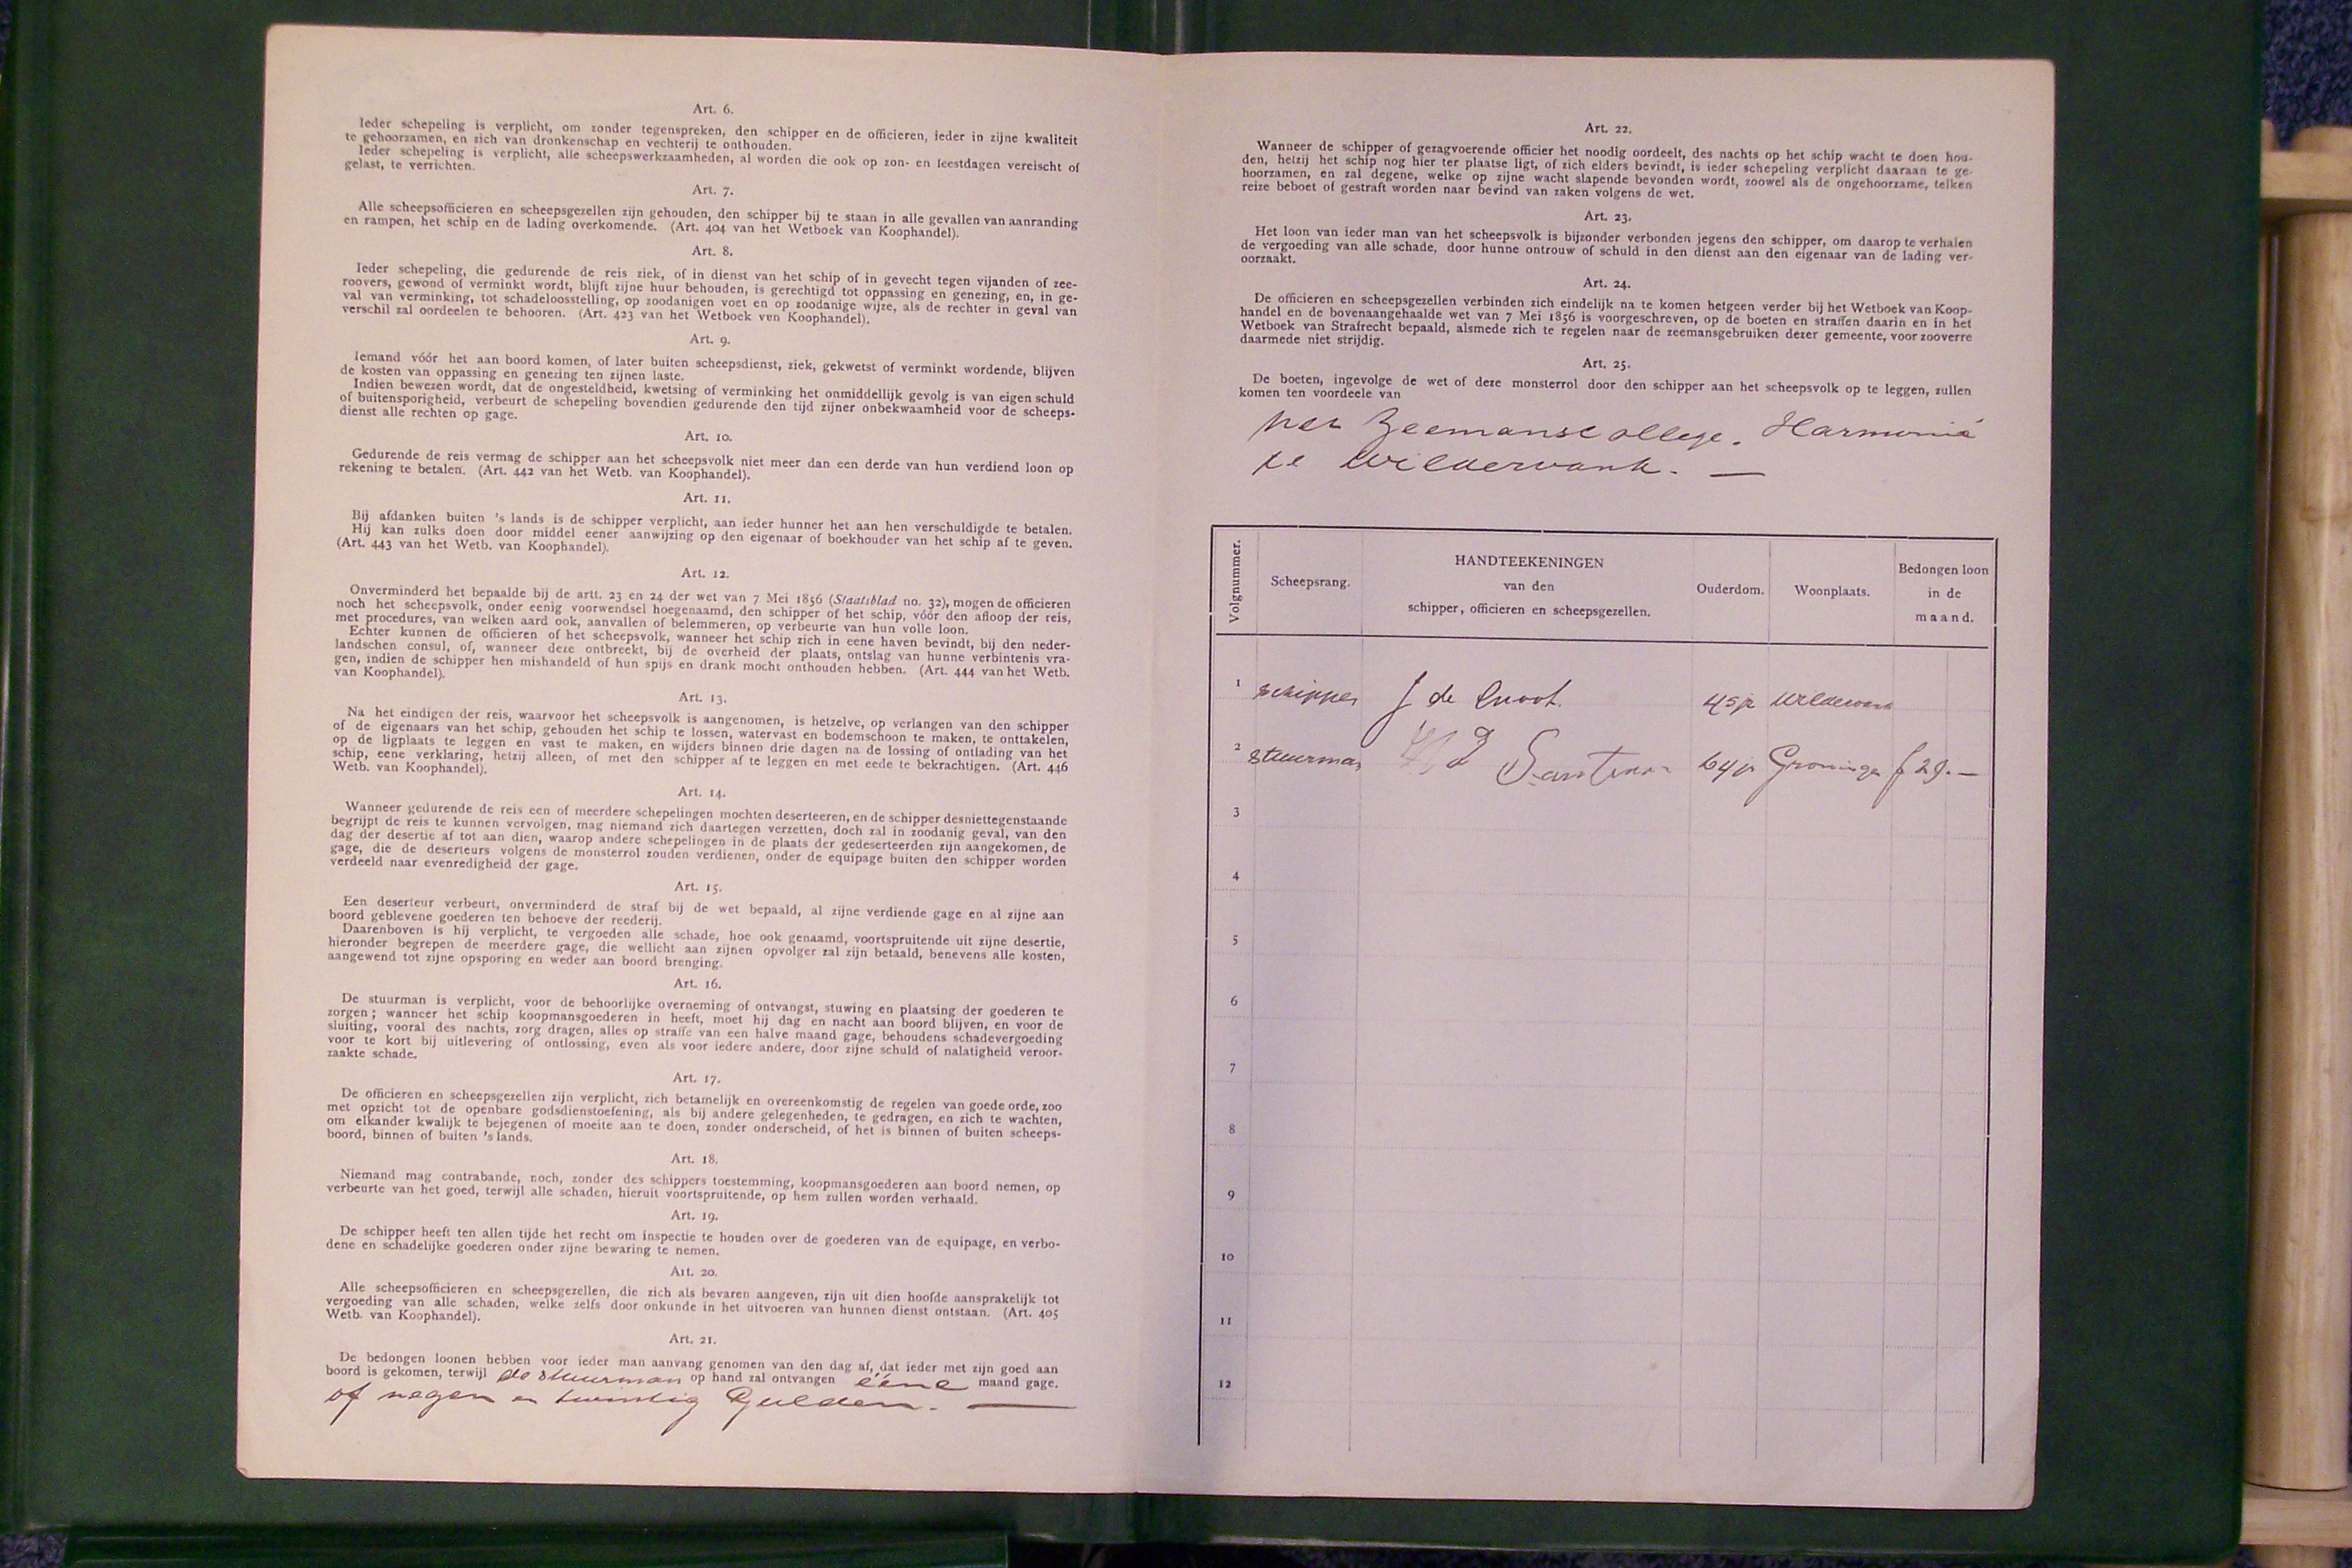 Art. 6.
Ieder schepeling is verplicht, om zonder tegenspreken, den schipper en de officieren, ieder in zijne kwaliteit
te gehoorzamen, en zich van dronkenschap en vechterij te onthouden.
Ieder schepeling is verplicht, alle scheepswerkzaamheden, al worden die ook op zon- en feestdagen vereischt of
gelast, te verrichten.
Art. 7.
Alle scheepsofficieren en scheepsgezellen zijn gehouden, den schipper bij te staan in alle gevallen van aanranding
en rampen, het schip en de lading overkomende. (Art. 404 van het Wetboek van Koophandel).
Art. 8.
Ieder schepeling, die gedurende de reis ziek, of in dienst van het schip of in gevecht tegen vijanden of zee-
roovers, gewond of verminkt wordt, blijft zijne huur behouden, is gerechtigd tot oppassing en genezing, en, in ge-
val van verminking, tot schadeloosstelling, op zoodanigen voet en op zoodanige wijze, als de rechter in geval van
verschil zal oordeelen te behooren. (Art. 423 van het Wetboek ven Koophandel).
Art. 9.
Iemand vóór het aan boord komen, of later buiten scheepsdienst, ziek, gekwetst of verminkt wordende, blijven
de kosten van oppassing en genezing ten zijnen laste.
Indien bewezen wordt, dat de ongesteldheid, kwetsing of verminking het onmiddellijk gevolg is van eigen schuld
of buitensporigheid, verbeurt de schepeling bovendien gedurende den tijd zijner onbekwaamheid voor de scheeps-
dienst alle rechten op gage.
Art. 10.
Gedurende de reis vermag de schipper aan het scheepsvolk niet meer dan een derde van hun verdiend loon op
rekening te betalen. (Art. 442 van het Wetb. van Koophandel).
Art. 11.
Bij afdanken buiten 's lands is de schipper verplicht, aan ieder hunner het aan hen verschuldigde te betalen.
Hij kan zulks doen door middel eener aanwijzing op den eigenaar of boekhouder van het schip af te geven.
(Art. 443 van het Wetb. van Koophandel).
Art. 12.
Onverminderd het bepaalde bij de artt. 23 en 24 der wet van 7 Mei 1856 (Staatsblad no. 32), mogen de officieren
noch het scheepsvolk, onder eenig voorwendsel hoegenaamd, den schipper of het schip, vóór den afloop der reis,
met procedures, van welken aard ook, aanvallen of belemmeren, op verbeurte van hun volle loon.
Echter kunnen de officieren of het scheepsvolk, wanneer het schip zich in eene haven bevindt, bij den neder-
landschen consul, of, wanneer deze ontbreekt, bij de overheid der plaats, ontslag van hunne verbintenis vra-
gen, indien de schipper hen mishandeld of hun spijs en drank mocht onthouden hebben. (Art. 444 van het Wetb.
van Koophandel).
Art. 13.
Na het eindigen der reis, waarvoor het scheepsvolk is aangenomen, is hetzelve, op verlangen van den schipper
of de eigenaars van het schip, gehouden het schip te lossen, watervast en bodemschoon te maken, te onttakelen,
op de ligplaats te leggen en vast te maken, en wijders binnen drie dagen na de lossing of ontlading van het
schip, eene verklaring, hetzij alleen, of met den schipper af te leggen en met eede te bekrachtigen. (Art. 446
Wetb. van Koophandel).
Art. 14.
Wanneer gedurende de reis een of meerdere schepelingen mochten deserteeren, en de schipper desniettegenstaande
begrijpt de reis te kunnen vervolgen, mag niemand zich daartegen verzetten, doch zal in zoodanig geval, van den
dag der desertie af tot aan dien, waarop andere schepelingen in de plaats der gedeserteerden zijn aangekomen, de
gage, die de deserteurs volgens de monsterrol zouden verdienen, onder de equipage buiten den schipper worden
verdeeld naar evenredigheid der gage.
Art. 15.
Een deserteur verbeurt, onverminderd de straf bij de wet bepaald, al zijne verdiende gage en al zijne aan
boord geblevene goederen ten behoeve der reederij.
Daarenboven is hij verplicht, te vergoeden alle schade, hoe ook genaamd, voortspruitende uit zijne desertie,
hieronder begrepen de meerdere gage, die wellicht aan zijnen opvolger zal zijn betaald, benevens alle kosten,
aangewend tot zijne opsporing en weder aan boord brenging.
Art. 16.
De stuurman is verplicht, voor de behoorlijke overneming of ontvangst, stuwing en plaatsing der goederen te
zorgen; wanneer het schip koopmansgoederen in heeft, moet hij dag en nacht aan boord blijven, en voor de
sluiting, vooral des nachts, zorg dragen, alles op straffe van een halve maand gage, behoudens schadevergoeding
voor te kort bij uitlevering of ontlossing, even als voor iedere andere, door zijne schuld of nalatigheid veroor-
zaakte schade.
Art. 17.
De officieren en scheepsgezellen zijn verplicht, zich betamelijk en overeenkomstig de regelen van goede orde, zoo
met opzicht tot de openbare godsdienstoefening, als bij andere gelegenheden, te gedragen, en zich te wachten,
om elkander kwalijk te bejegenen of moeite aan te doen, zonder onderscheid, of het is binnen of buiten scheeps-
boord, binnen of buiten 's lands.
Art. 18.
Niemand mag contrabande, noch, zonder des schippers toestemming, koopmansgoederen aan boord nemen, op
verbeurte van het goed, terwijl alle schaden, hieruit voortspruitende, op hem zullen worden verhaald.
Art. 19.
De schipper heeft ten allen tijde het recht om inspectie te houden over de goederen van de equipage, en verbo-
dene en schadelijke goederen onder zijne bewaring te nemen.
Art. 20.
Alle scheepsofficieren en scheepsgezellen, die zich als bevaren aangeven, zijn uit dien hoofde aansprakelijk tot
vergoeding van alle schaden, welke zelfs door onkunde in het uitvoeren van hunnen dienst ontstaan. (Art. 405
Wetb. van Koophandel).
Art. 21.
De bedongen loonen hebben voor ieder man aanvang genomen van den dag af, dat ieder met zijn goed aan
boord is gekomen, terwijl de stuurman op hand zal ontvangen ééne maand gage.
of negen en twintig Gulden. —
Art. 22.
Wanneer de schipper of gezagvoerende officier het noodig oordeelt, des nachts op het schip wacht te doen hou-
den, hetzij het schip nog hier ter plaatse ligt, of zich elders bevindt, is ieder schepeling verplicht daaraan te ge-
hoorzamen, en zal degene, welke op zijne wacht slapende bevonden wordt, zoowel als de ongehoorzame, telken
reize beboet of gestraft worden naar bevind van zaken volgens de wet.
Art. 23.
Het loon van ieder man van het scheepsvolk is bijzonder verbonden jegens den schipper, om daarop te verhalen
de vergoeding van alle schade, door hunne ontrouw of schuld in den dienst aan den eigenaar van de lading ver-
oorzaakt.
Art. 24.
De officieren en scheepsgezellen verbinden zich eindelijk na te komen hetgeen verder bij het Wetboek van Koop-
handel en de bovenaangehaalde wet van 7 Mei 1856 is voorgeschreven, op de boeten en straffen daarin en in het
Wetboek van Strafrecht bepaald, alsmede zich te regelen naar de zeemansgebruiken dezer gemeente, voor zooverre
daarmede niet strijdig.
Art. 25.
De boeten, ingevolge de wet of deze monsterrol door den schipper aan het scheepsvolk op te leggen, zullen
komen ten voordeele van
het Zeemanscollege. Harmonie
te Wildervank. —
Volgnummer. Scheepsrang. HANDTEEKENINGEN van den schipper, officieren en scheepsgezellen. Ouderdom. Woonplaats. Bedongen loon in de maand.
1 schipper J de Groot. 45 jr Wildervank
2 stuurman 64 jr Groningen f 29.—
3
4
5
6
7
8
9
10
11
12